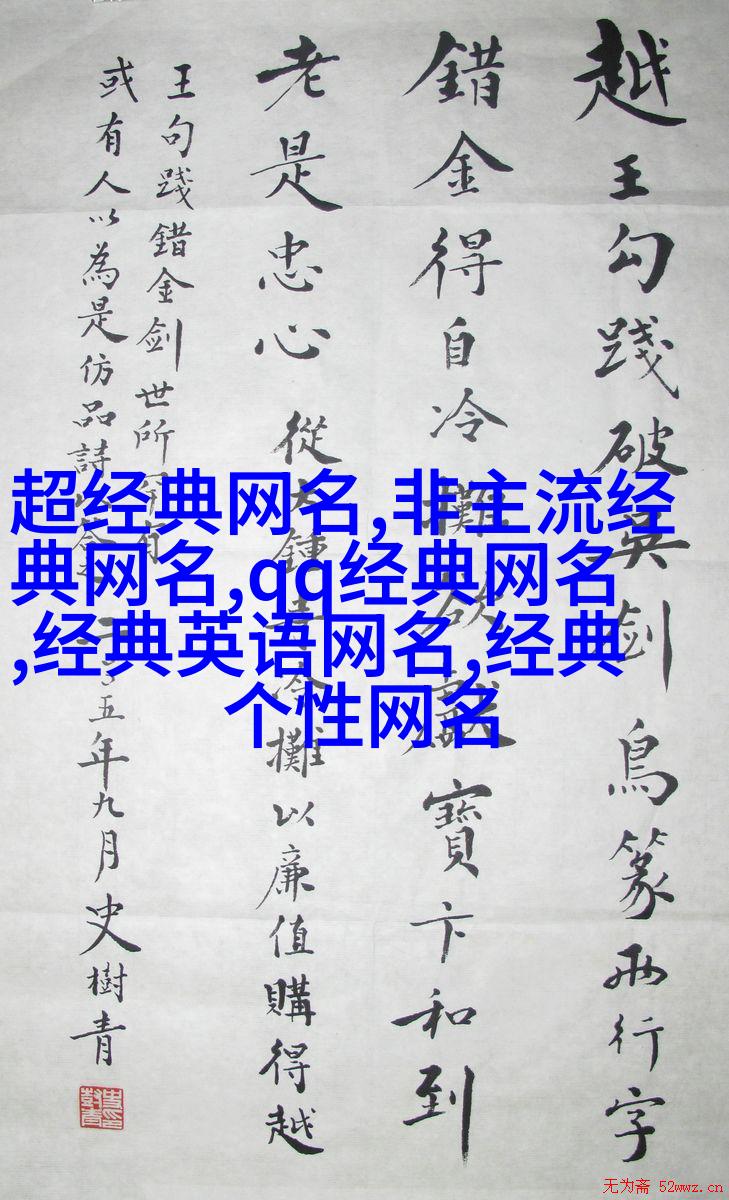 越王勾踐破吳剑鳥篆兩行字
錯金得自冷攤欲寶卞和到
老是忠心 從大鍾寺冷攤以廉值購得越
王句踐錯金剑世所
或有人以為是仿品詩五年九月史樹青
超经典网名,非主流经
典网名,qq经典网名
,经典英语网名,经典
个性网名
无为斋 52wwz.cn